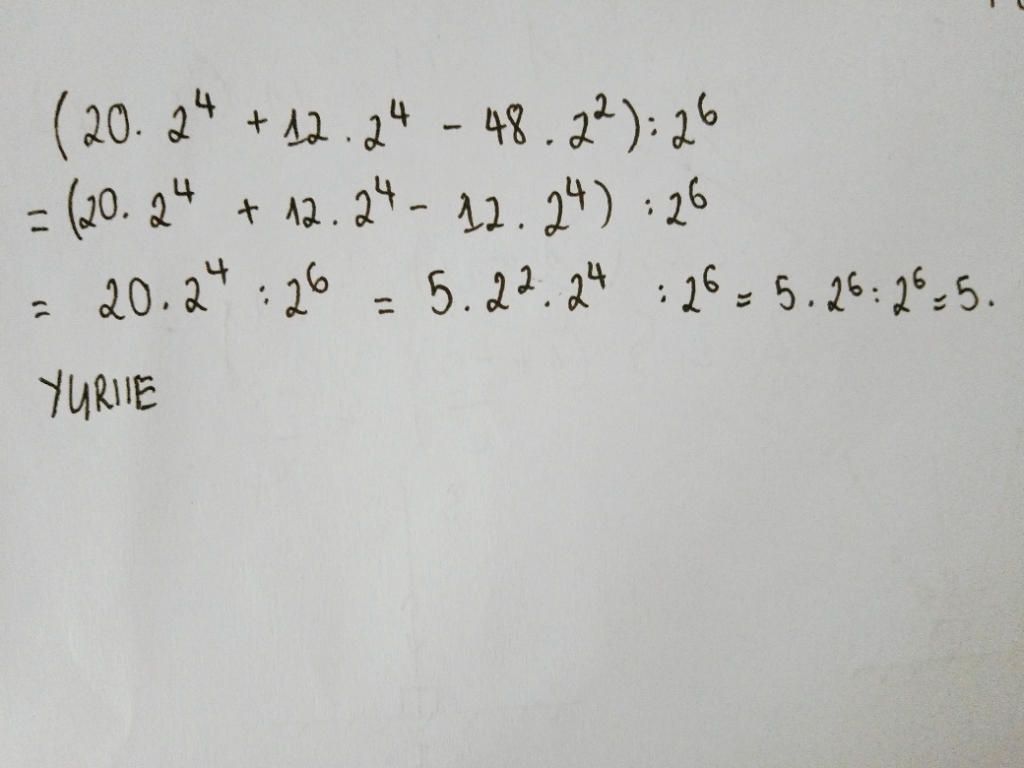 (20. 2⁴ + 12 . 2⁴ - 48 . 2²) : 2⁶
= (20. 2⁴ + 12. 2⁴ - 12. 2⁴) : 2⁶
= 20. 2⁴ : 2⁶ = 5. 2². 2⁴ : 2⁶ = 5. 2⁶ : 2⁶ = 5.
YURIIE